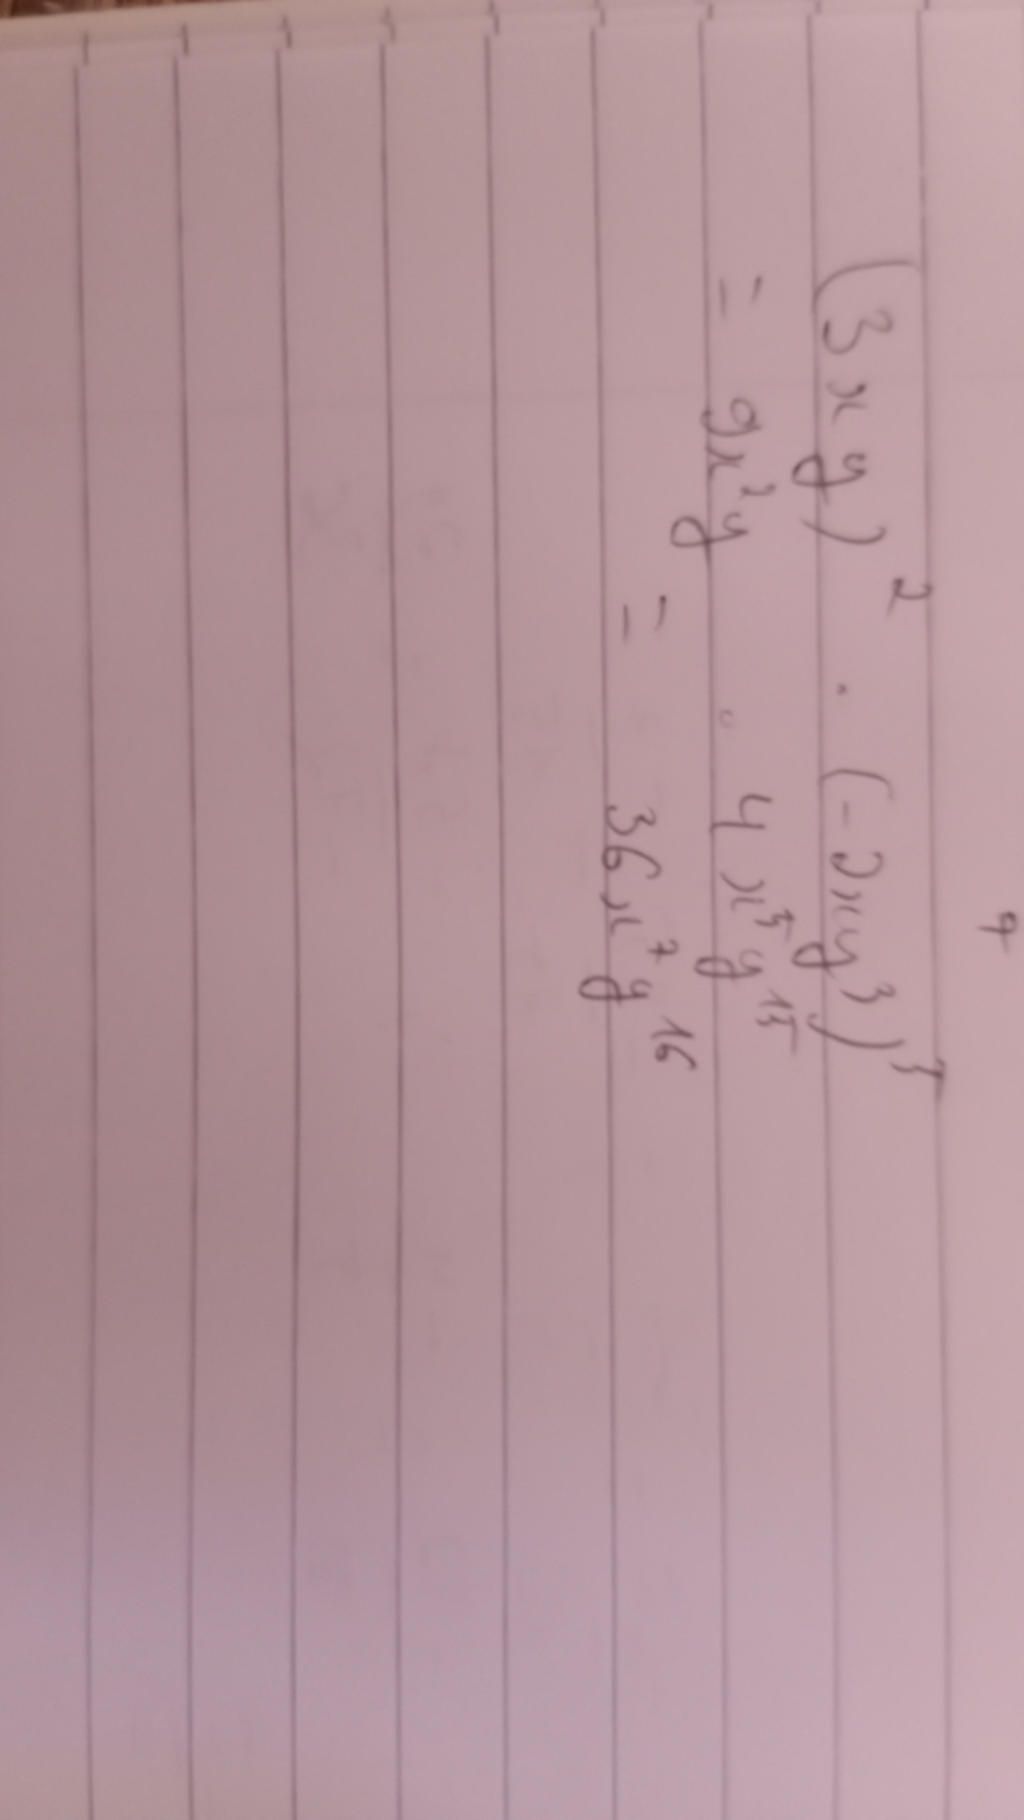 7
(3xy)² · (-2xy³)⁵
= 9x²y · 4x⁵y¹⁵
= 36x⁷y¹⁶